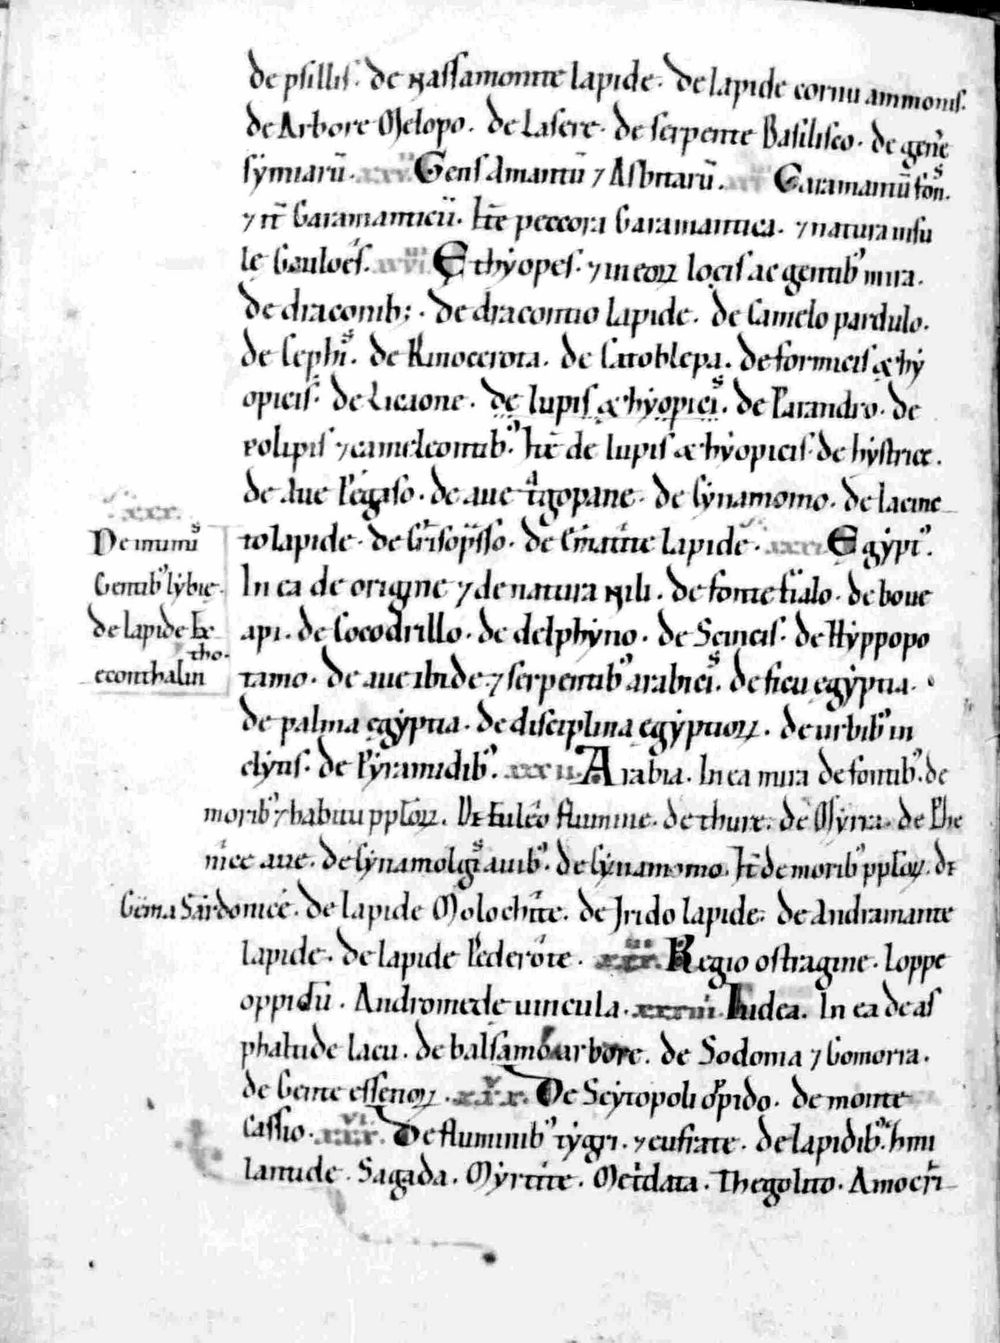 de psillis· de Nassamonite lapide· De lapide cornu ammonis·
de Arbore Melopo· de Lasere· de serpente Basilisco· de gen̄e
sẏmiarū· xxv Gens Amantū ⁊ Asbitarū· Garamantū fon̄s·
⁊ it̄ Garamanticū· Itē peccora Garamantica· ⁊ natura insu
le Gauloes· xxvi Ethẏopes· ⁊ in eoꝝ locis ac gentibꝰ mira·
de draconib;· De dracontio lapide· de Camelo pardulo·
de Cephis· de Rinocerota· de Catoblepa· de formicis æthẏ
opicis· de Licaone· de lupis æthẏopicis· de Parandro· de
Volipis ⁊ cameleontibꝰ· Itē de lupis æthẏopicis· de hẏstrice·
de Aue Pegaso· de aue tragopane· de Cẏnamomo· de Iacinc
to lapide· de Crisoprasso· de Ematite lapide· xxxi Egẏptꝰ·
In ea de origine ⁊ de natura Nili· de fonte fialo· de boue
api· de Cocodrillo· de delphẏno· de Scincis· de Hẏppopo
tamo· de aue ibide· ⁊ serpentibꝰ arabicis· de ficu egẏptia·
de palma egẏptia· de disciplina egẏptioꝝ· de urbibꝰ in
clẏtis· de Pẏramidibꝰ· xxxii Arabia· In ea mira de fontibꝰ· de
moribꝰ ⁊ habitu pploꝝ· De Euleo flumine· de thure· de Mẏrra· de Phe
nice aue· de Cẏnamolgis auibꝰ· de Cẏnamomo· It̄ de moribꝰ pploꝝ· de
Gēma Sardonice· de lapide Molochite· de Irido lapide· de Andramante
lapide· de lapide Pederote· xxx Regio ostragine· Ioppe
oppidū· Andromede uincula· xxxiiii Iudea· In ea de as
phaltide lacu· de balsamo arbore· de Sodoma ⁊ Gomorra·
de Gente essenoꝝ· xxx De Scẏtopoli oppido· de monte
Cassio· xxx De fluminibꝰ tẏgri· ⁊ eufrate· de lapidibꝰ
Sagada· Mẏrrite· Metridata·
xxx
De intimis
Gentibꝰ lẏbie·
de lapide Exe
contho
litho·